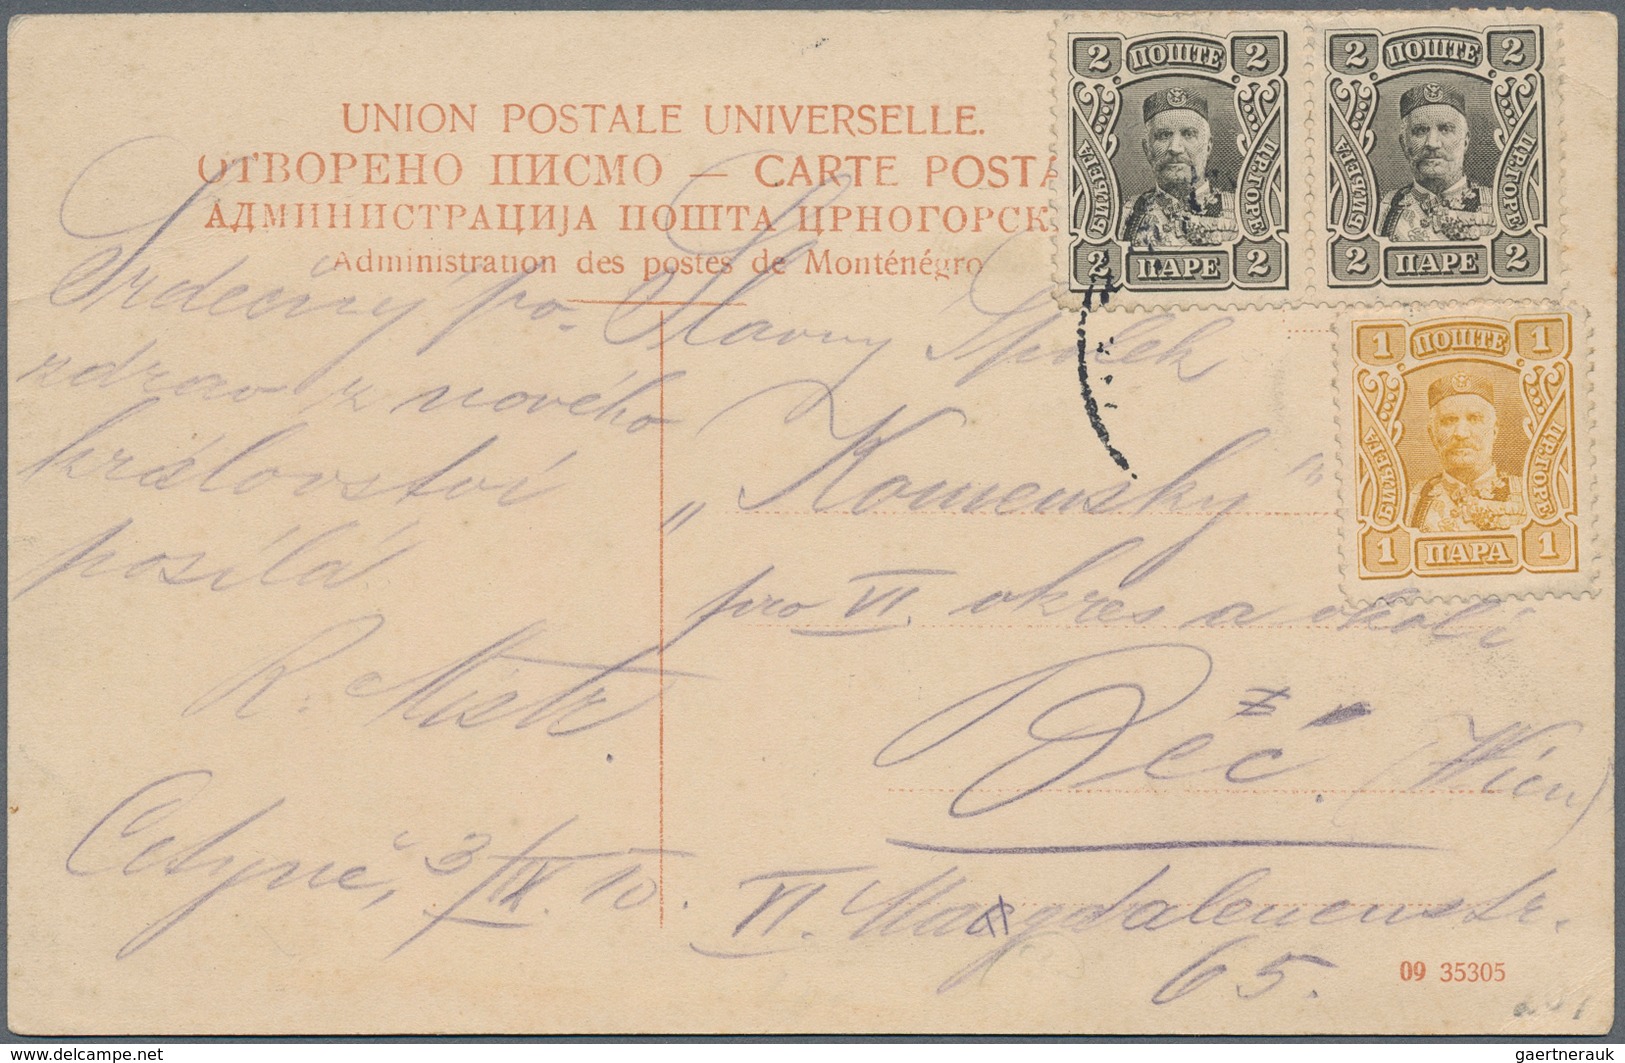 UNION POSTALE UNIVERSELLE.
ОТВОРЕНО ПИСМО — CARTE POSTA
АДМИНИСТРАЦИЈА ПОШТА ЦРНОГОРСК
Administration des postes de Monténégro
2 ПОШТЕ 2
БИЉЕГА
ЦР.ГОРЕ
2 ПАРЕ 2
2 ПОШТЕ 2
БИЉЕГА
ЦР.ГОРЕ
2 ПАРЕ 2
1 ПОШТЕ 1
БИЉЕГА
ЦР.ГОРЕ
1 ПАРА 1
Srdečný po-
zdrav z nového
království
posílá
R. Mistr.
Cetyně, 3/IX. 10.
Slavný Spolek
„Komenský“
pro VI. okres a okolí
Běč. (Wien)
VI. Magdalenenstr.
65.
09 35305
www.delcampe.net
gaertnerauk